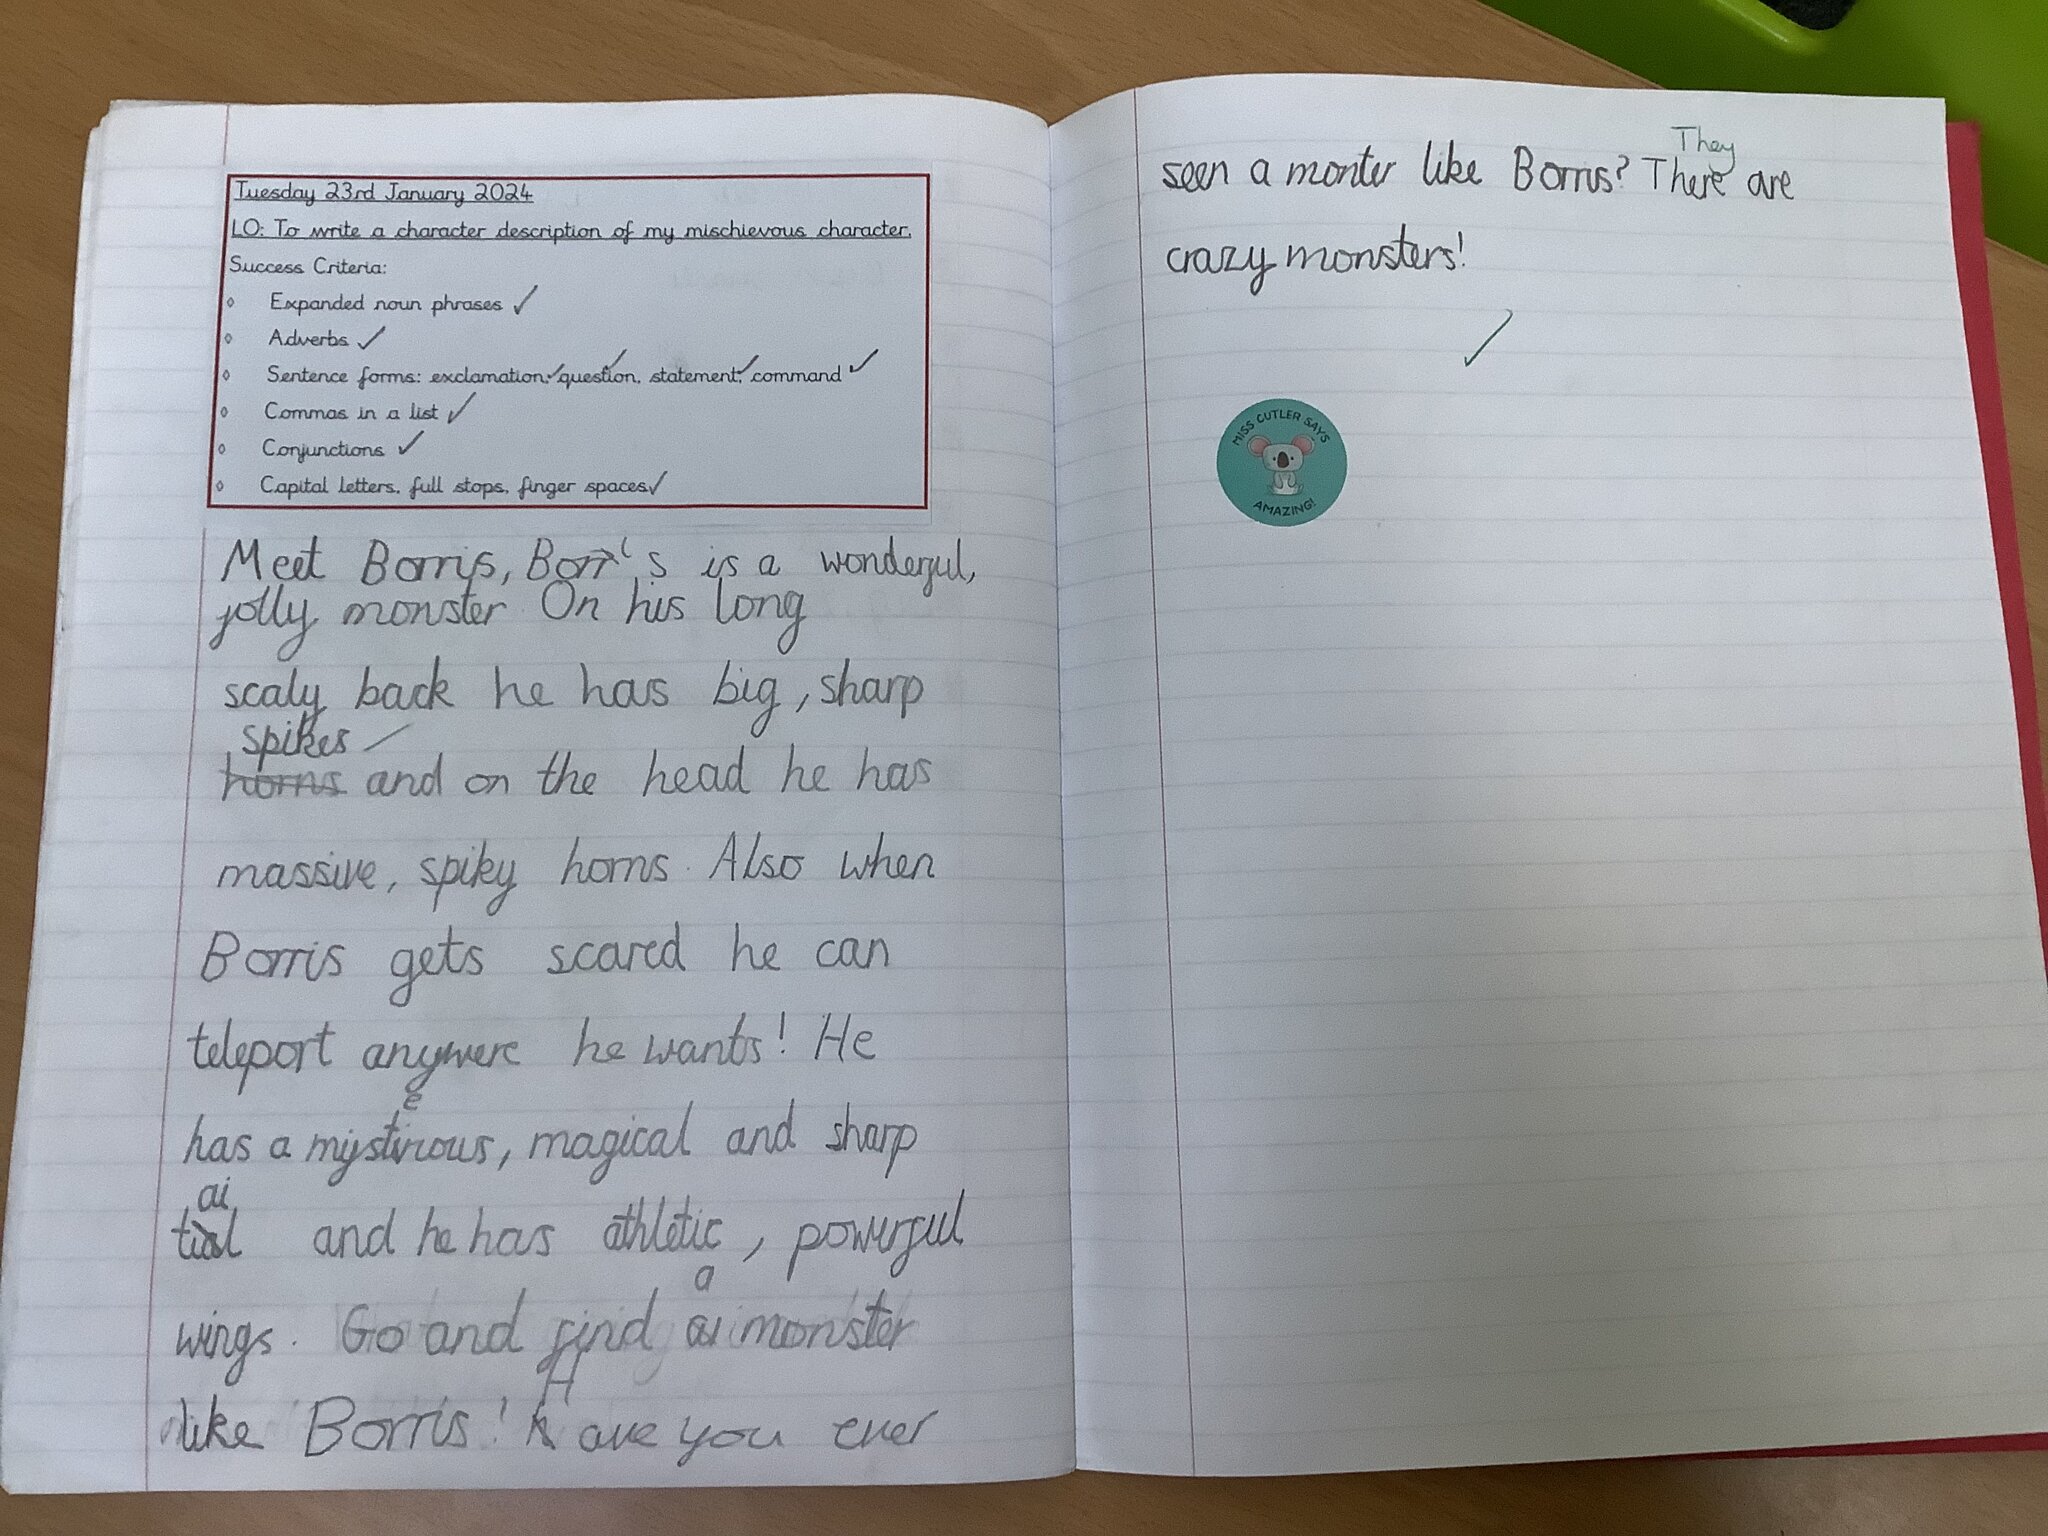 Tuesday 23rd January 2024
LO: To write a character description of my mischievous character.
Success Criteria:
Expanded noun phrases
Adverbs
Sentence forms: exclamation, question, statement, command
Commas in a list
Conjunctions
Capital letters, full stops, finger spaces
Meet Borris, Borris is a wonderful,
jolly monster. On his long
scaly back he has big, sharp
spikes
horns and on the head he has
massive, spiky horns. Also when
Borris gets scared he can
teleport anywere he wants! He
e
has a mystirous, magical and sharp
ai
tial and he has athletic, powerful
a
wings. Go and find a monster
H
like Borris! have you ever
They
seen a monter like Borris? There are
crazy monsters!
MISS CUTLER SAYS
AMAZING!